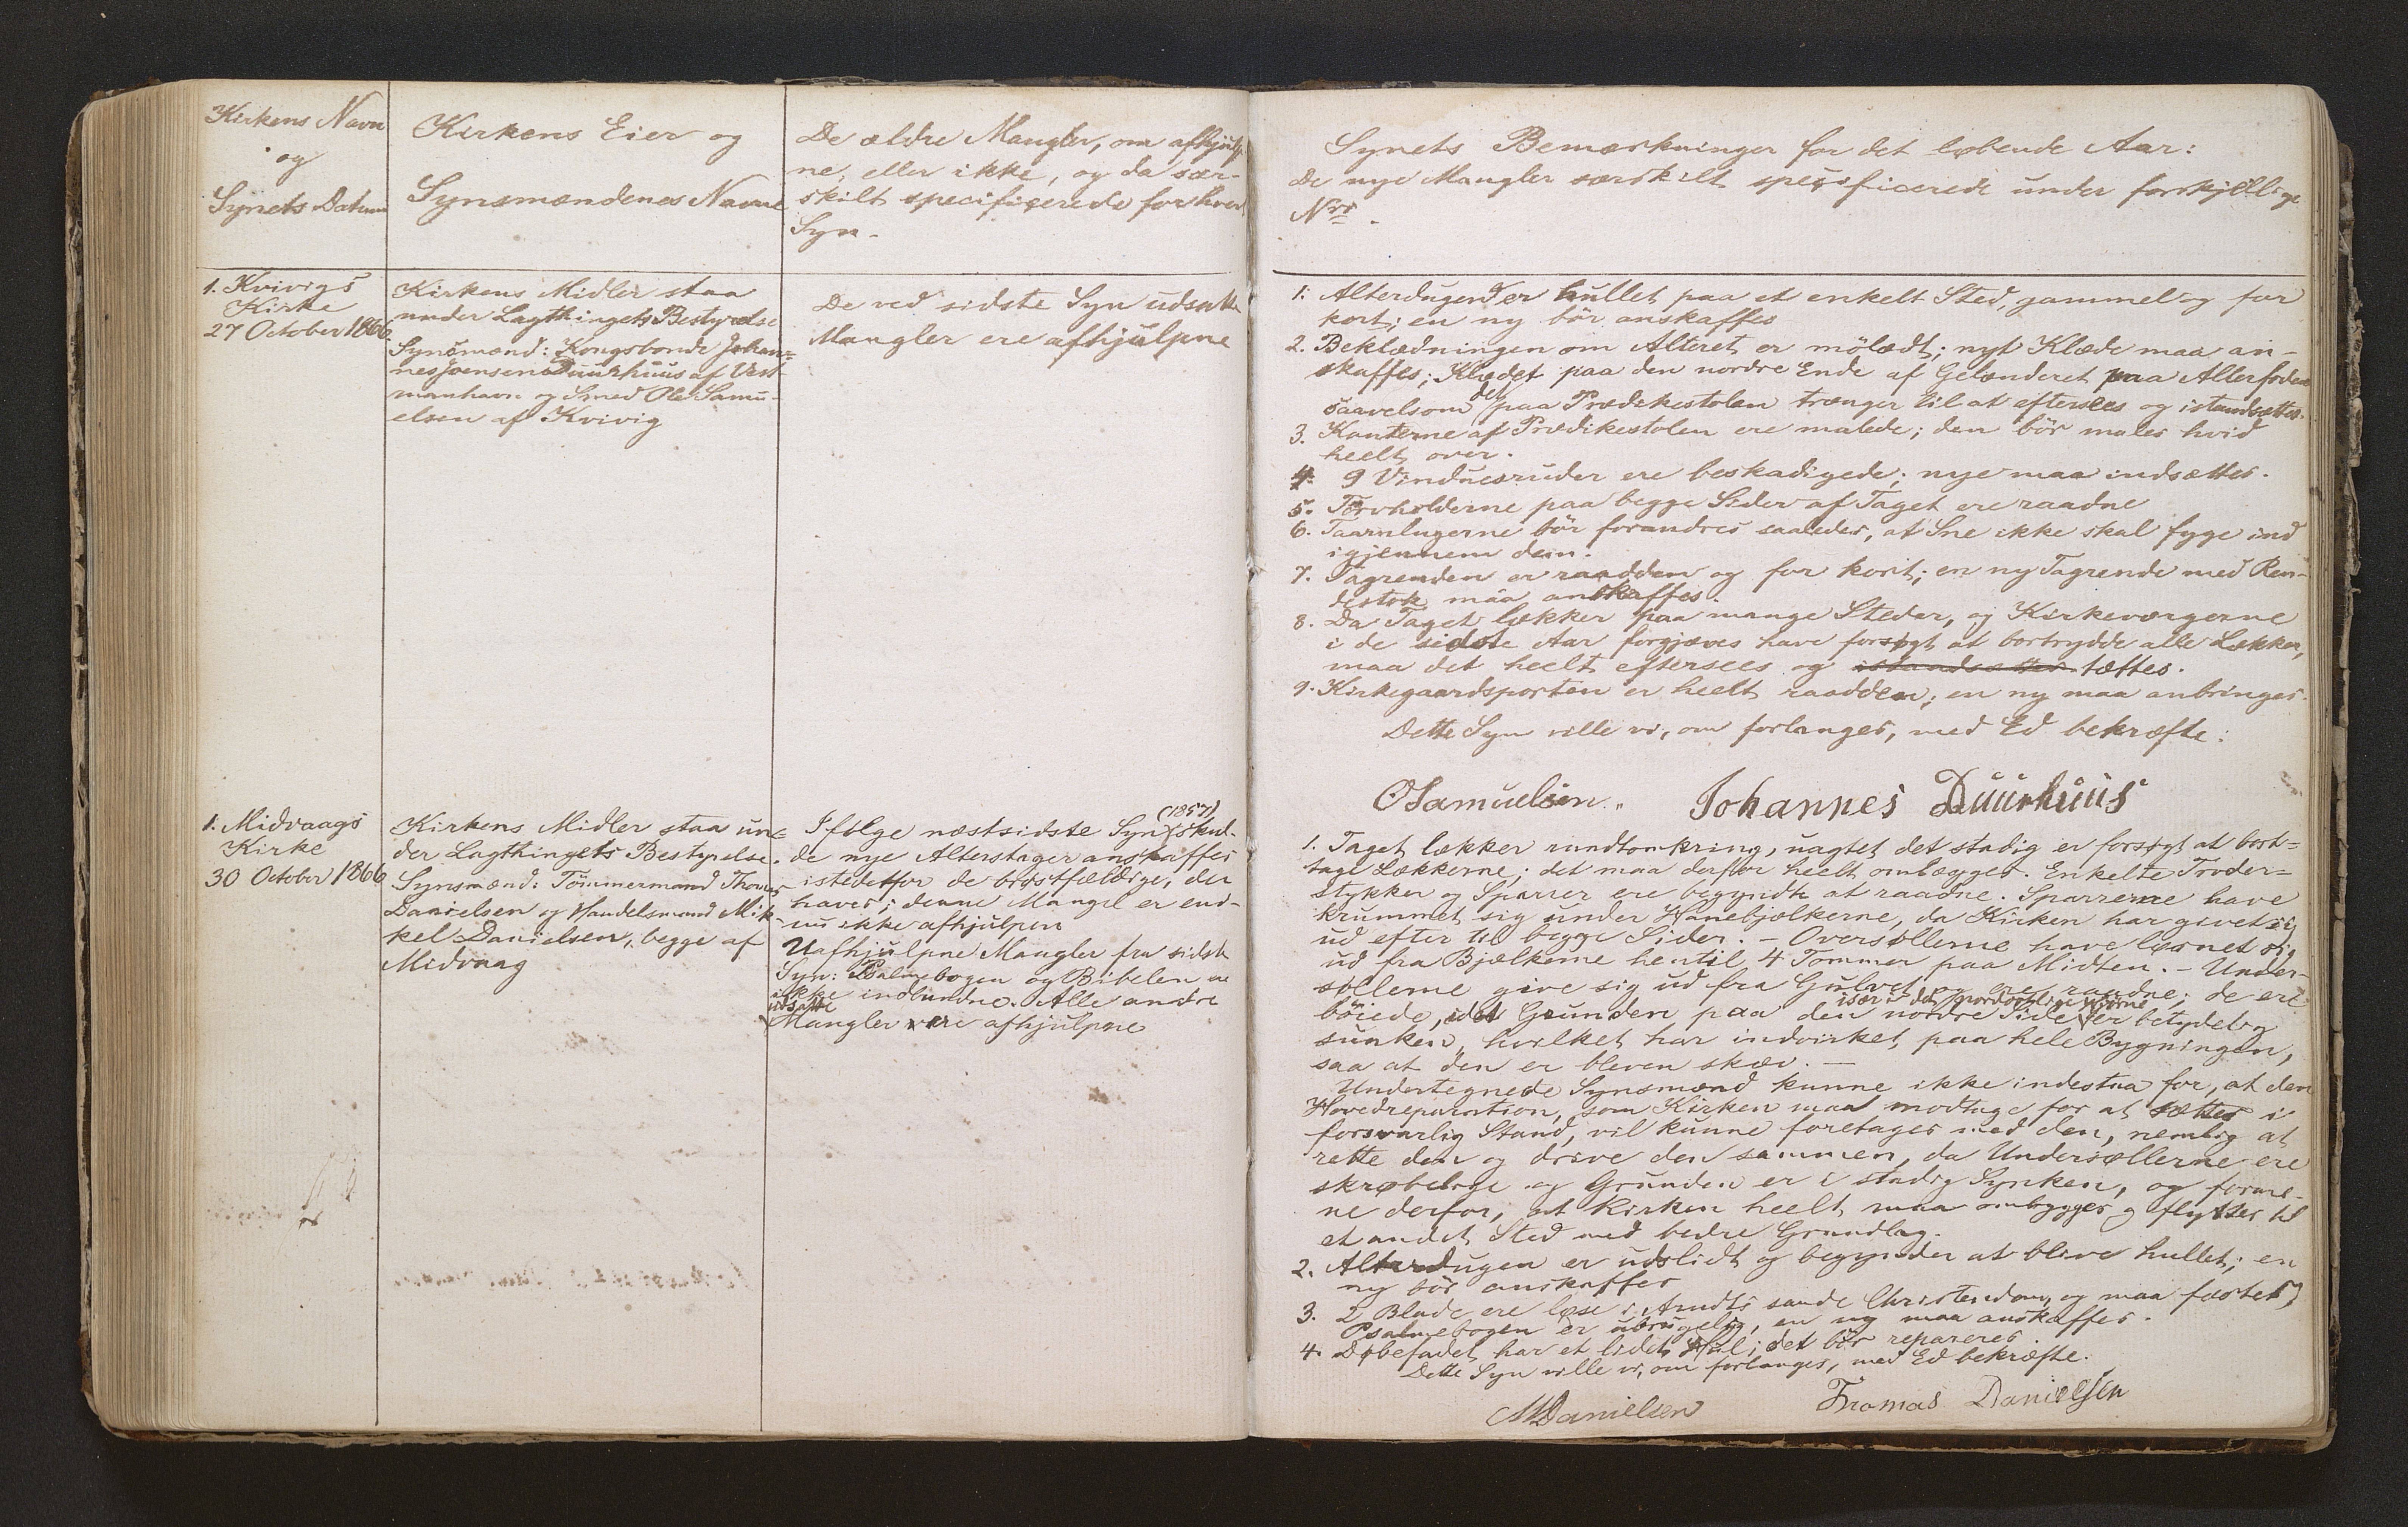 Kirkens Navn
og
Synets Datum
Kirkens Eier og
Synsmændenes Navne
De ældre Mangler, om afhjulp
ne, eller ikke, og da sær-
skilt specificerede for hvert
Syn.
Synets Bemærkninger for det løbende Aar:
De nye Mangler særskilt specificerede under forskjellige
Nrs.
1. Kvivigs
Kirke
27 October 1866.
Kirkens Midler staa
under Lagthingets Bestyrelse
Synsmænd: Kongsbonde Johan=
nes Joensen Duurhuus af Vest-
manhavn og Smed Ole Samu-
elsen af Kvivig
De ved sidste Syn udsatte
Mangler ere afhjulpne
1. Alterdugen er hullet paa et enkelt Sted, gammel og for
kort; en ny bör anskaffes
2. Beklædningen om Alteret er mölædt; nyt Klæde maa an-
skaffes; Klædet paa den nordre Ende af Gelænderet paa Alterfoden
saavelsom det paa Prædikestolen trænger til at eftersees og istandsættes.
3. Kanterne af Prædikestolen ere malede; den bör males hvid
heelt over.
4. 9 Vinduesruder ere beskadigede; nye maa indsættes.
5. Törvholderne paa begge Sider af Taget ere raadne
6. Taarnlugerne bör forandres saaledes, at Sne ikke skal fyge ind
igjennem dem.
7. Tagrenden er raadden og for kort; en ny Tagrende med Ren-
destok maa anskaffes.
8. Da Taget lækker paa mange Steder, og Kirkeværgerne
i de sidste Aar forgjæves have forsøgt at bortrydde alle Lækker,
maa det heelt eftersees og istandsættes tættes.
9. Kirkegaardsporten er heelt raadden; en ny maa anbringes.
Dette Syn ville vi, om forlanges, med Ed bekræfte:
OSamuelsen.. Johannes Duurhuus
1. Midvaags
Kirke
30 October 1866
Kirkens Midler staa un=
der Lagthingets Bestyrelse.
Synsmænd: Tömmermand Thomas
Danielsen og Handelsmand Mik-
kel Danielsen, begge af
Midvaag
(1857)
Ifølge næstsidste Syn skul-
de nye Alterstager anskaffes
istedetfor de brøstfældige, der
haves; denne Mangel er end-
nu ikke afhjulpen
Uafhjulpne Mangler fra sidste
Syn: Psalmebogen og Bibelen ere
ikke indbundne. Alle andre
udsatte
Mangler ere afhjulpne
1. Taget lækker rundtomkring, uagtet det stadig er forsøgt at bort=
tage Lækkerne; det maa derfor heelt omlægges. Enkelte Troder=
stykker og Sparrer ere begyndte at raadne. Sparrerne have
krummet sig under Hanebjælkerne, da Kirken har givet sig
ud efter til begge Sider. - Oversøllerne have løsnet sig
ud fra Bjælkerne hentil 4 Tommer paa Midten. - Under-
søllerne give sig ud fra Gulvet og ere raadne; de ere
især i det nordøstlige Hjørne
böiede, idet Grunden paa den nordre Side er betydelig
sunken, hvilket har indvirket paa hele Bygningen,
saa at den er bleven skæv. —
Undertegnede Synsmænd kunne ikke indestaa for, at den
Hovedreparation, som Kirken maa modtage for at sættes i
forsvarlig Stand, vil kunne foretages med den, nemlig at
rette den og drive den sammen, da Undersøllerne ere
skrøbelige og Grunden er i stadig Synken, og forme-
ne derfor, at Kirken heelt maa ombygges og flyttes til
et andet Sted med bedre Grundlag.
2. Alterdugen er udslidt og begynder at blive hullet; en
ny bör anskaffes
3. 2 Blade ere løse i Arndts sande Christendom og maa fæstes;
Psalmebogen er ubrugelig, en ny maa anskaffes.
4. Døbefadet har et lidet Hul; det bör repareres.
Dette Syn ville vi, om forlanges, med Ed bekræfte.
MDanielsen Thomas Danielsen